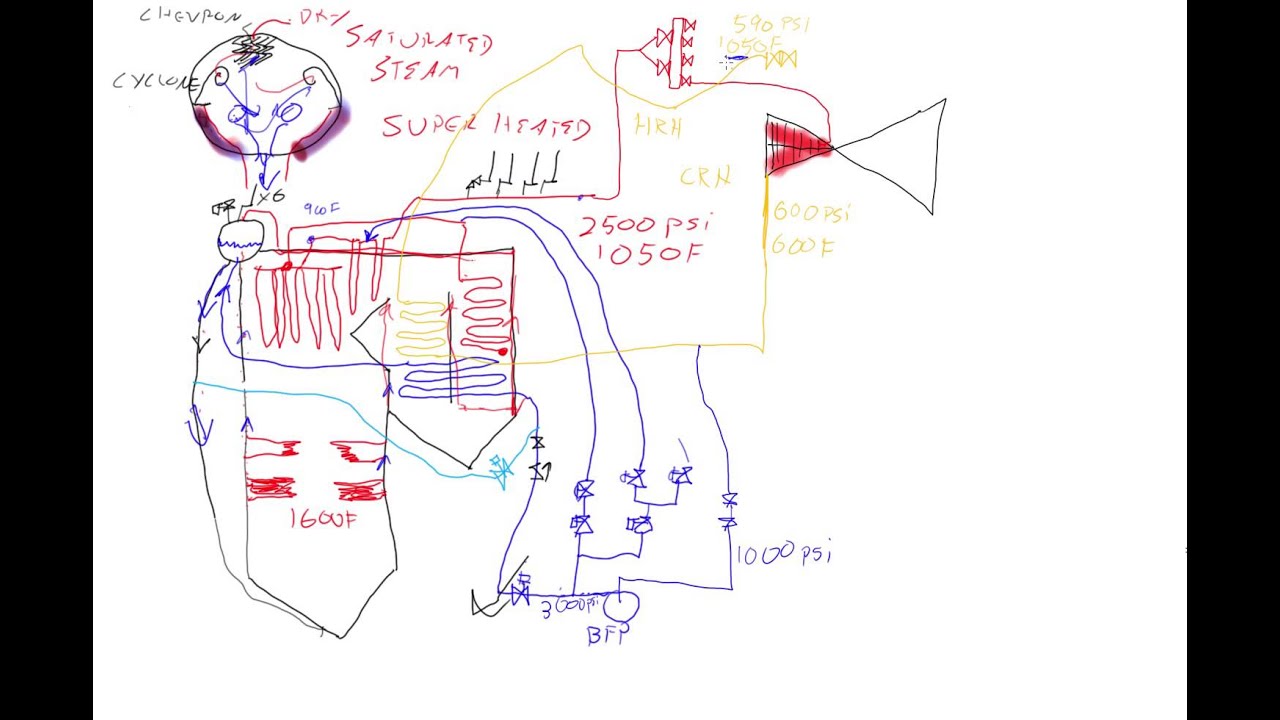 CHEVRON
DRY
SATURATED
STEAM
CYCLONE
SUPER HEATED
590 PSI
1050F
HRH
CRH
X6
900F
2500 psi
1050F
600 PSI
600F
1600F
1000 psi
3000psi
BFP